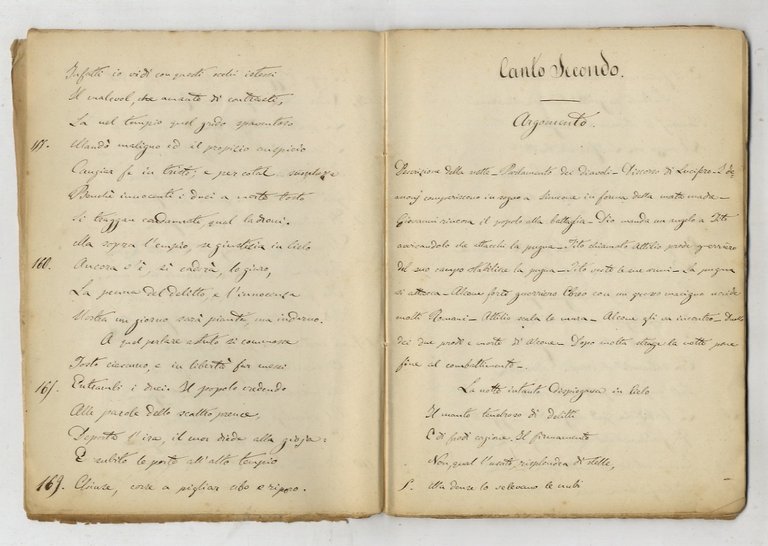 Infatti io vidi con questi occhi istessi
Il malevol, che amante di contrasti,
La nel tempio quel grido spaventoso
Mandò maligno ed il propizio auspicio
Cangiar fe in tristo, e per cotal
Benchè innocenti i duci a morte tosto
Si traggan condannati, qual ladroni.
Ma sopra l'empio, se giustizia in Cielo
160. Ancora v'è, si cadrà, lo giuro,
La penna del delitto, e l'innocenza
Vostra un giorno sarà pianta, ma indarno.
A quel parlare astuto si commosse
Tosto ciascuno, e in libertà fur messi
165. Entrambi i duci. Il popolo credendo
Alle parole dello scaltro prence,
Deposta l'ira, il cuor diede alla gioja:
E subito le porte all'alto tempio
169. Chiuse, corse a pigliar cibo e riposo.
Canto Secondo.
Argomento.
Descrizione della notte – Parlamento dei diavoli – Discorso di Lucifero – I de-
monj compariscono in sogno a Simone in forma della morta madre –
Giovanni rincora il popolo alla battaglia – Dio manda un angelo a Tito
avvisandolo da attacchi la pugna – Tito chiamato Attilio prode guerriero
del suo campo stabilisce la pugna – Tito veste le sue armi – La pugna
si attacca – Alcone forte guerriero Ebreo con un grosso macigno uccide
molti Romani – Attilio scala le mura – Alcone gli va incontro – Duello
dei due prodi e morte di Alcone – Dopo molta strage la notte pone
fine al combattimento –
La notte intanto dispiegava in Cielo
Il manto tenebroso di delitti
E di frodi cagione. Il firmamento
Non, qual l'usato, risplendea di stelle,
5. Ma dense lo velavano le nubi